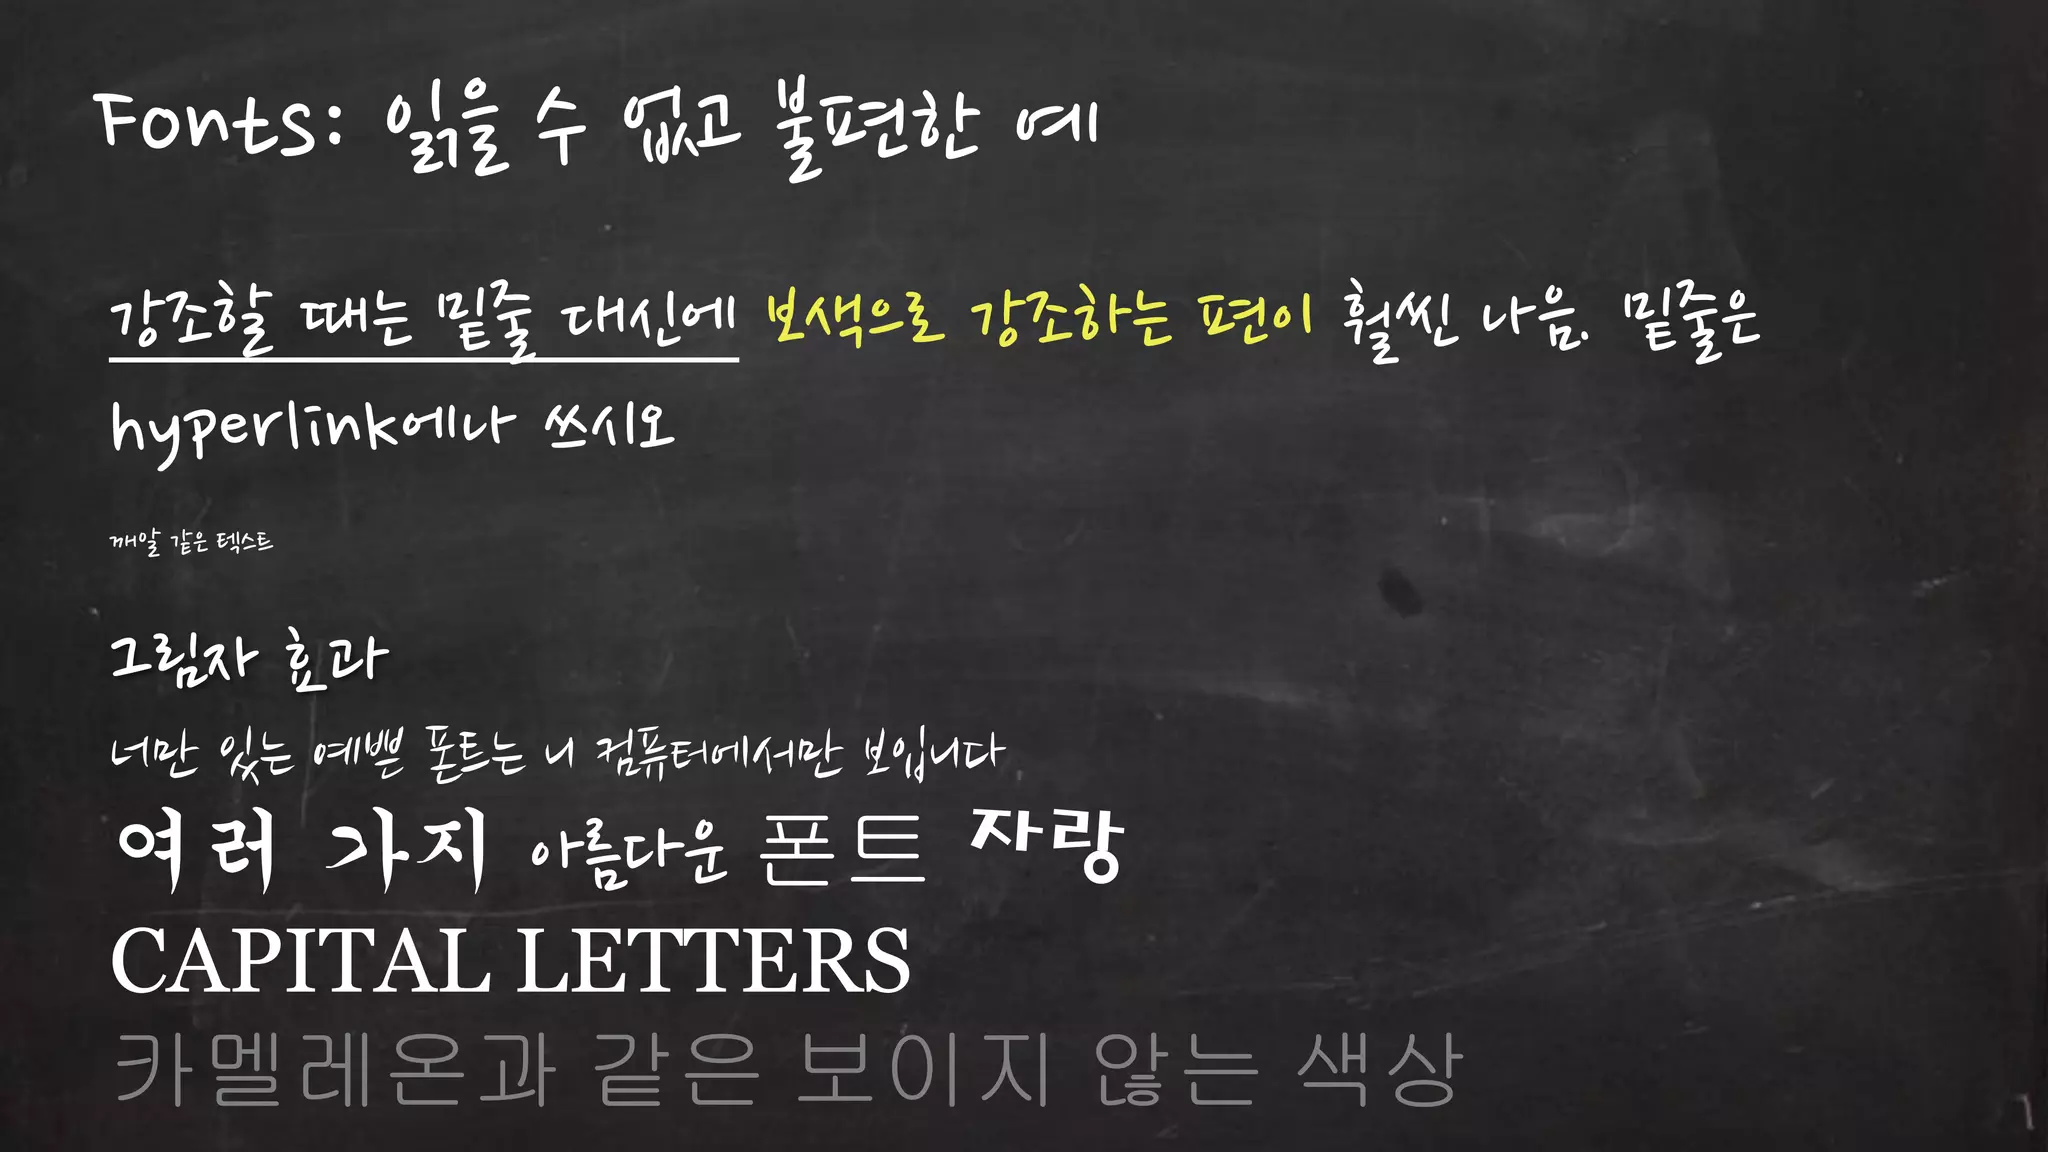 Fonts: 읽을 수 없고 불편한 예
강조할 때는 밑줄 대신에 보색으로 강조하는 편이 훨씬 나음. 밑줄은
hyperlink에나 쓰시오
깨알 같은 텍스트
그림자 효과
너만 있는 예쁜 폰트는 니 컴퓨터에서만 보입니다
여러 가지 아름다운 폰트 자랑
CAPITAL LETTERS
카멜레온과 같은 보이지 않는 색상